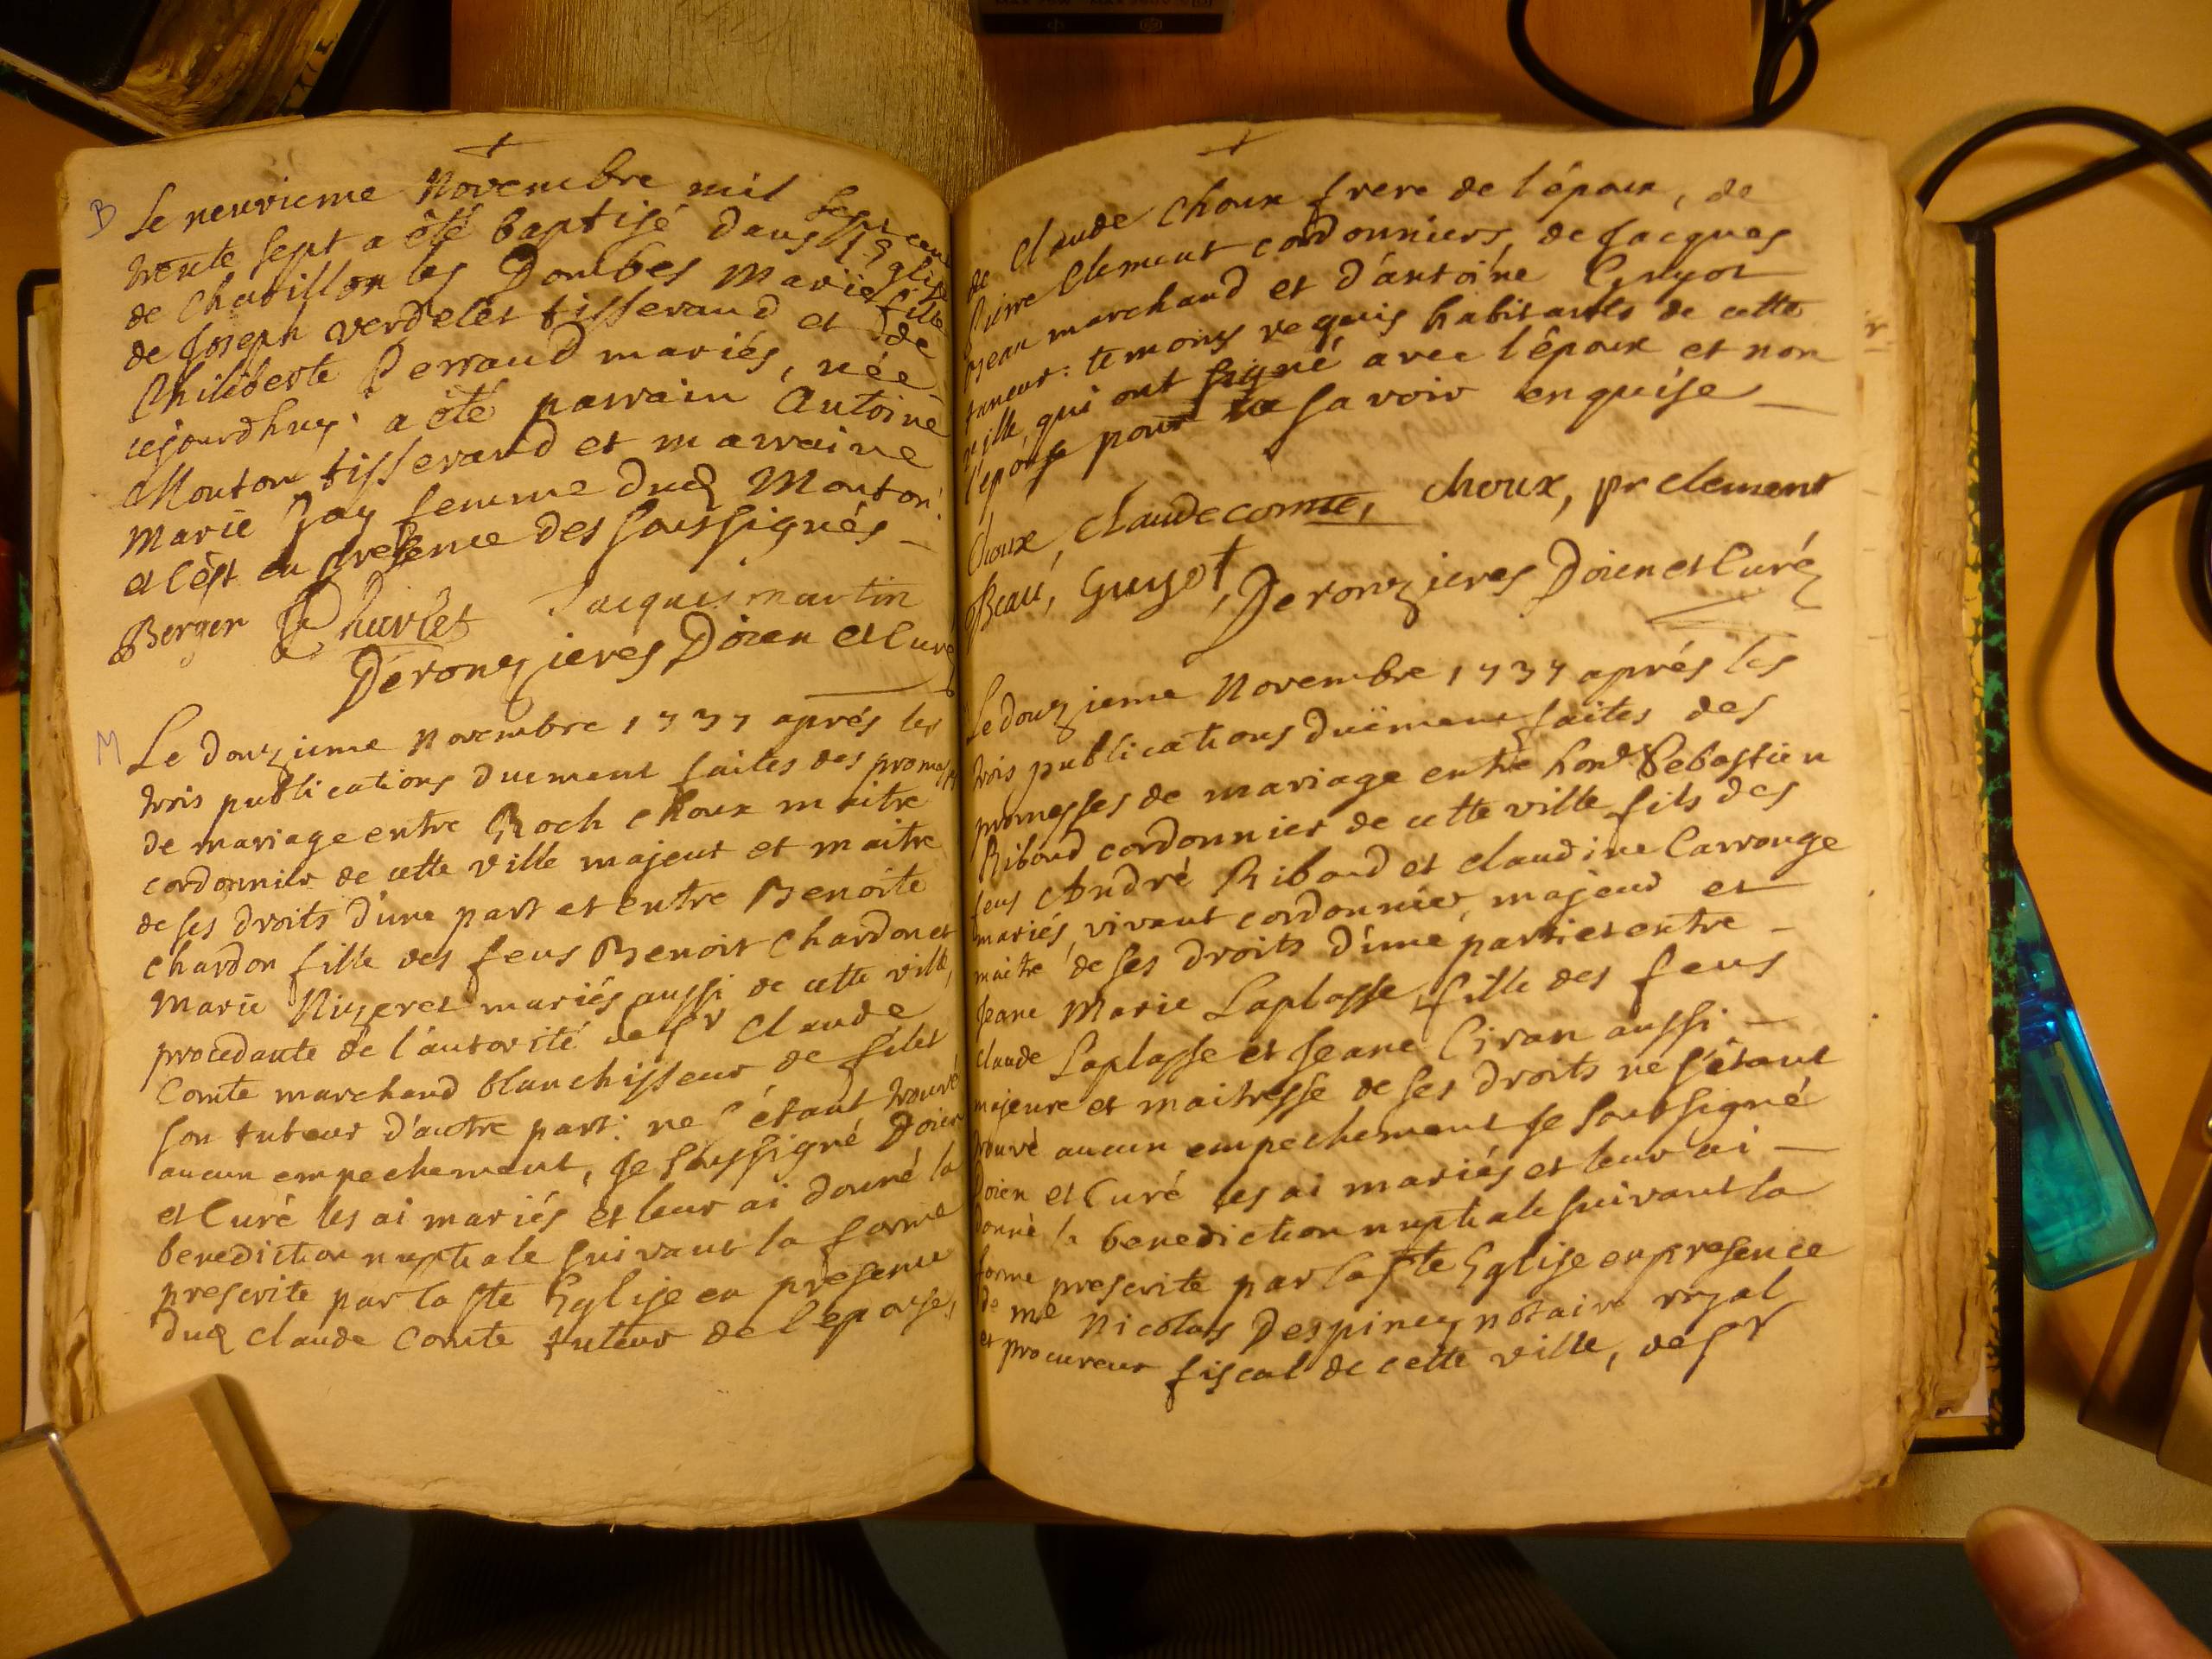 B Le neuvieme Novembre mil sept cent
trente sept a été baptisé dans l'Eglise
de Chatillon les Dombes Marie fille
de Joseph verdelet tisserand et de
Philiberte Perraud mariés, née
cejourdhuy: a été parrain Antoine
Mouton tisserand et marraine
Marie Gay femme dud Mouton:
et c'est en presence des soussignés_
Berger Charlet Jacques martin
Deronzieres Doien et Curé
M Le douzieme Novembre 1737 aprés les
trois publications duement faites des promesses
de mariage entre Roch Choux maitre
cordonnier de cette ville majeur et maitre
de ses droits d'une part et entre Benoite
Chardon fille des feus Benoit Chardon et
Marie Nizeret mariés aussi de cette ville,
procedante de l'autorité de sr Claude
Comte marchand blanchisseur de filet
son tuteur d'autre part: ne s'étant trouvé
aucun empechement, Je soussigné Doien
et Curé les ai mariés et leur ai donné la
benediction nuptiale suivant la forme
prescrite par la ste Eglise en presence
dud Claude Comte tuteur de l'epouse,
de Claude Choux frere de l'époux, de
Pierre Clement cordonniers, de Jacques
Beau marchand et d'antoine Guyot
taneur: temoins requis habitants de cette
ville, qui ont signé avec l'époux et non
l'epouse pour ne savoir enquise_
Choux, Claude comte, Choux, pr clement
Beau, Guyot, Deronzieres Doien et Curé
Le douzieme Novembre 1737 aprés les
trois publications duëment faites des
promesses de mariage entre hond Sebastien
Riboud cordonnier de cette ville fils des
feus André Riboud et claudine Carronge
mariés, vivant cordonnier, majeur et
maitre de ses droits d'une part et entre_
Jeane Marie Laplasse, fille des feus
Claude Laplasse et Jeane Civan aussi_
majeure et maitresse de ses droits ne s'étant
trouvé aucun empechement Je soussigné
Doien et Curé les ai mariés et leur ai_
donné la benediction nuptiale suivant la
forme prescrite par la ste Eglise en presence
de me Nicolas Despiney notaire royal
et procureur fiscal de cette ville, de sr